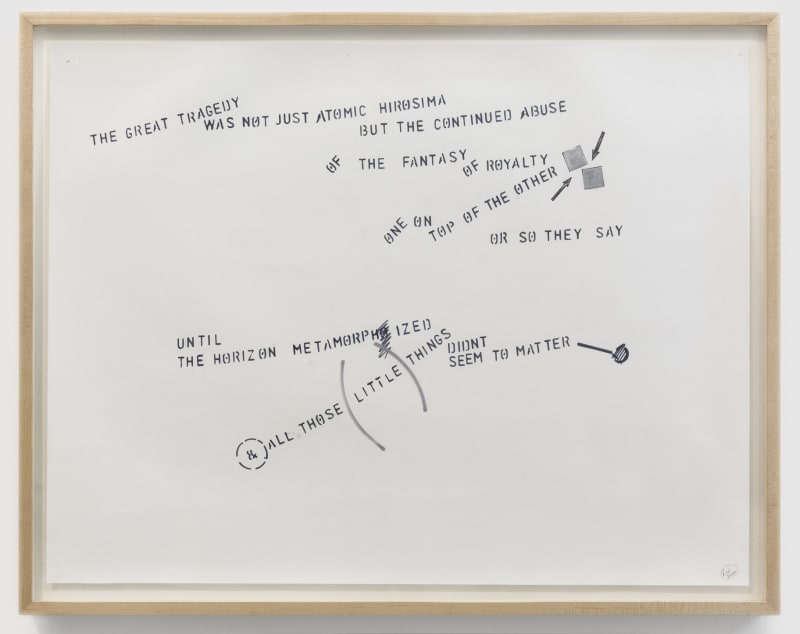 THE GREAT TRAGEDY
WAS NOT JUST ATOMIC HIROSIMA
BUT THE CONTINUED ABUSE
OF THE FANTASY
OF ROYALTY
ONE ON
TOP OF THE OTHER
OR SO THEY SAY
UNTIL
THE HORIZON METAMORPHOIZED
& ALL THOSE (LITTLE THINGS)
DIDNT
SEEM TO MATTER